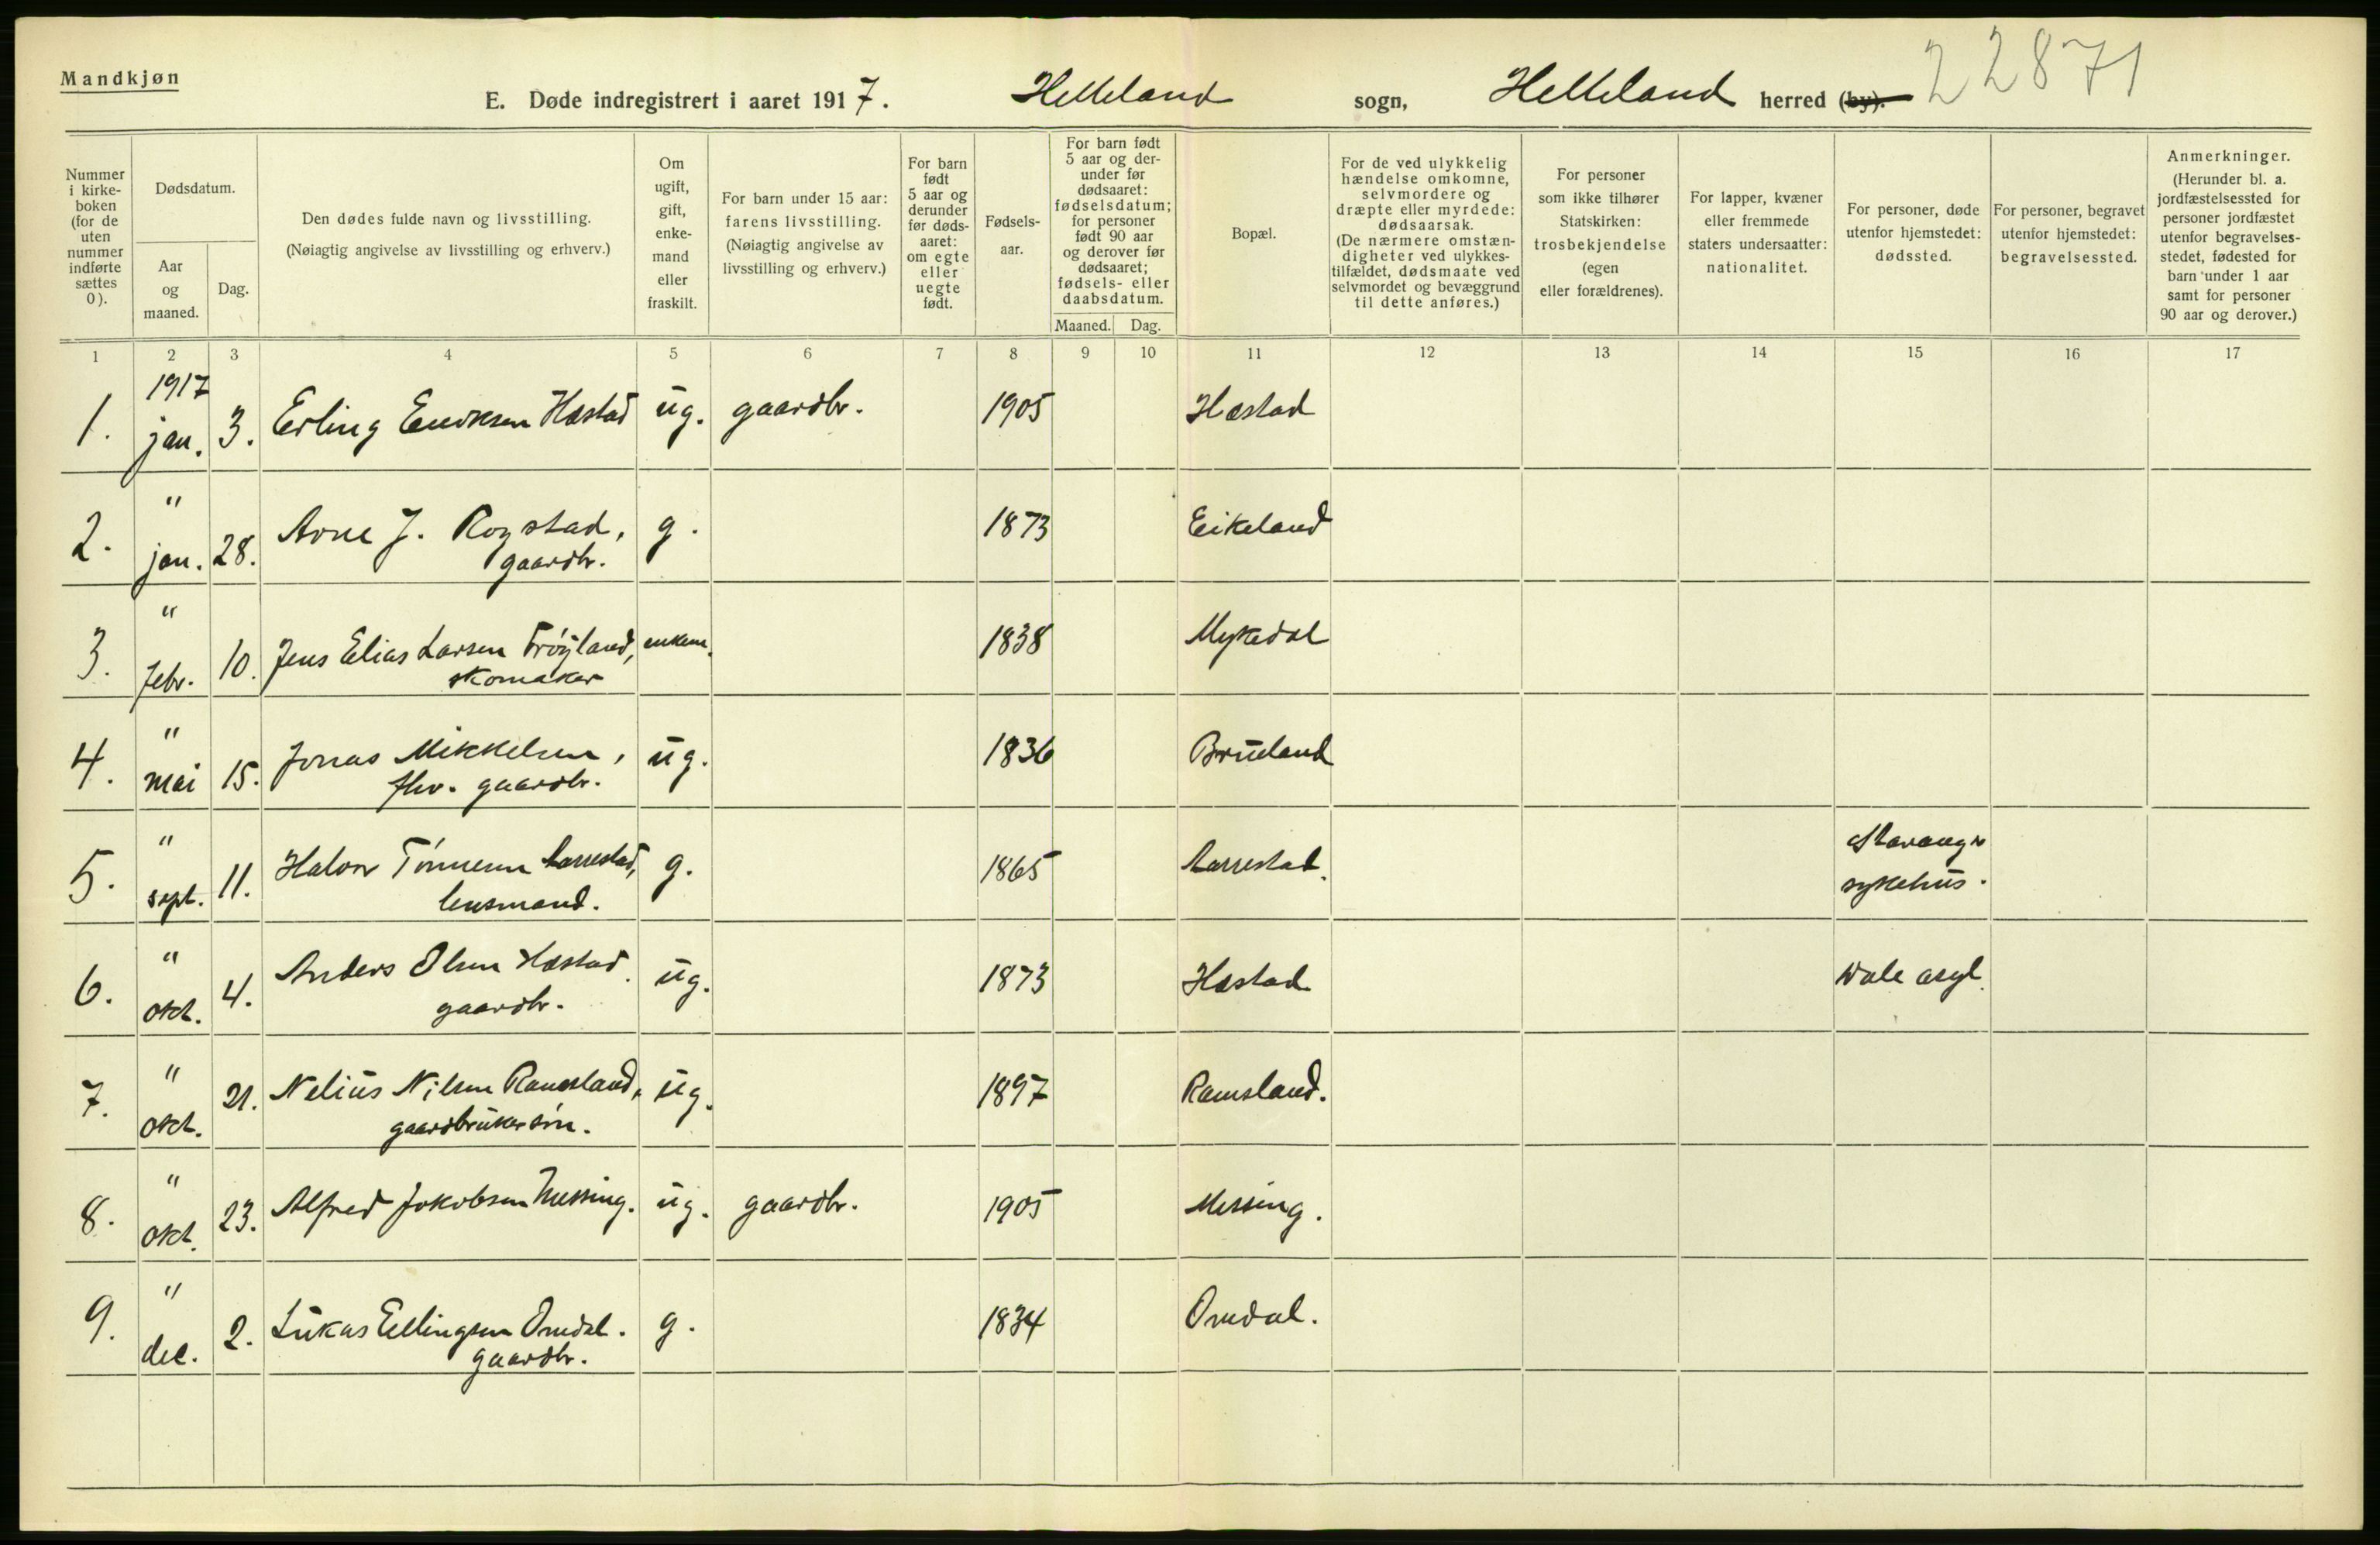 Mandkjøn
22871
E. Døde indregistrert i aaret 1917. Helleland sogn, Helleland herred (by).
Nummer i kirke- boken (for de uten nummer indførte sættes 0).
Dødsdatum.
Aar og maaned.
Dag.
Den dødes fulde navn og livsstilling.
(Nøiagtig angivelse av livsstilling og erhverv.)
Om ugift, gift, enke- mand eller fraskilt.
For barn under 15 aar: farens livsstilling. (Nøiagtig angivelse av livsstilling og erhverv.)
For barn født 5 aar og derunder før døds- aaret: om egte eller uegte født.
Fødsels- aar.
For barn født 5 aar og der- under før dødsaaret: fødselsdatum; for personer født 90 aar og derover før dødsaaret; fødsels- eller daabsdatum.
Maaned.
Dag.
Bopæl.
For de ved ulykkelig hændelse omkomne, selvmordere og dræpte eller myrdede: dødsaarsak. (De nærmere omstæn- digheter ved ulykkes- tilfældet, dødsmaate ved selvmordet og bevæggrund til dette anføres.)
For personer som ikke tilhører Statskirken: trosbekjendelse (egen eller forældrenes).
For lapper, kvæner eller fremmede staters undersaatter: nationalitet.
For personer, døde utenfor hjemstedet: dødssted.
For personer, begravet utenfor hjemstedet: begravelsessted.
Anmerkninger. (Herunder bl. a. jordfæstelsessted for personer jordfæstet utenfor begravelses- stedet, fødested for barn under 1 aar samt for personer 90 aar og derover.)
1 2 3 4 5 6 7 8 9 10 11 12 13 14 15 16 17
1917
1. jan. 3. Erling Eriksen Hæstad ug. gaardbr. 1905 Hæstad
"
2. jan. 28. Arne J. Rogstad, g. 1873 Eikeland
gaardbr.
"
3. febr. 10. Jens Elias Larsen Trøgland, enkem. 1838 Mykedal
skomaker
"
4. mai 15. Jonas Mikkelsen, ug. 1836 Brueland
fhv. gaardbr.
"
5. sept. 11. Halvor Tønnesen Aarrestad, g. 1865 Aarrestad. Stavanger
lensmand. sykehus.
"
6. okt. 4. Anders Olsen Hæstad. ug. 1873 Hæstad Dale asyl.
gaardbr.
"
7. okt. 21. Nelius Nilsen Ramsland, ug. 1897 Ramsland.
gaardbrukersøn.
"
8. okt. 23. Alfred Jakobsen Messing. ug. gaardbr. 1905 Messing.
"
9. dec. 2. Lukas Ellingsen Omdal. g. 1834 Omdal.
gaardbr.